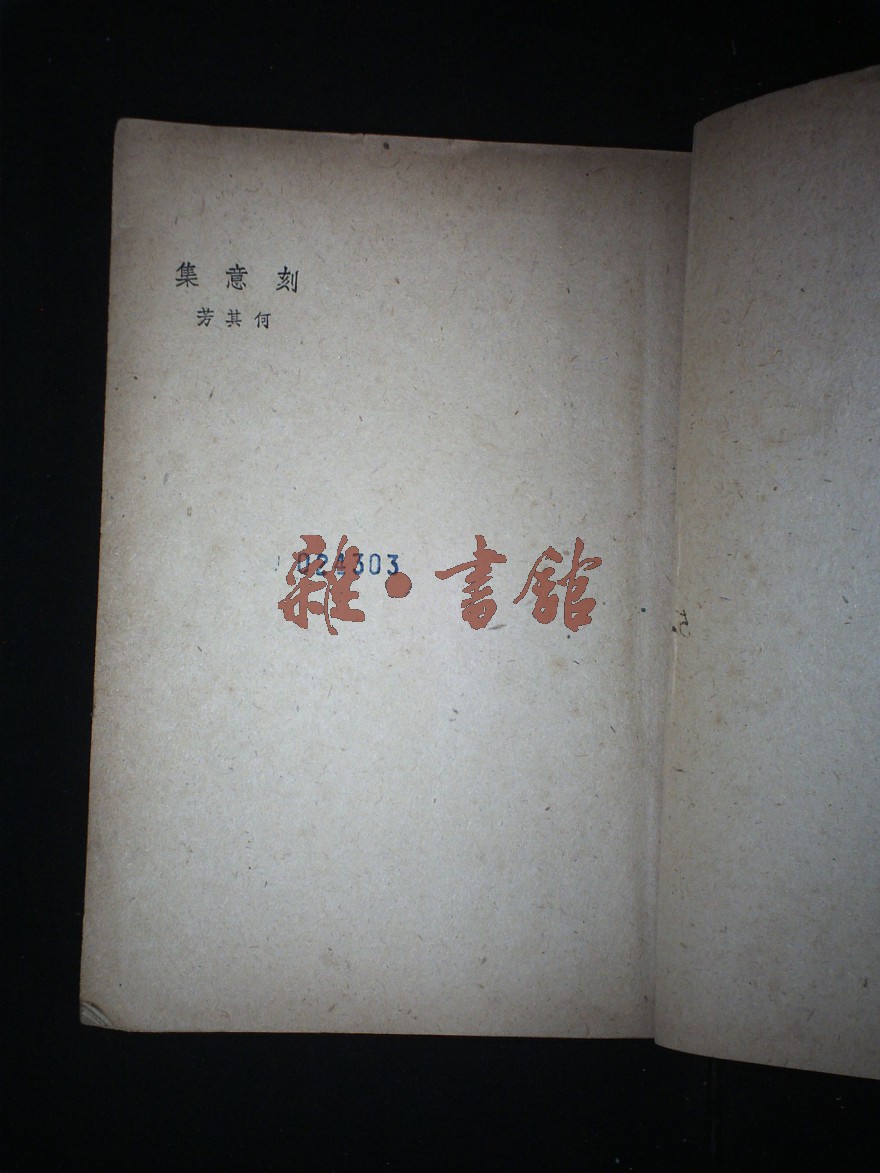 刻意集
何其芳
024303
雜·書館